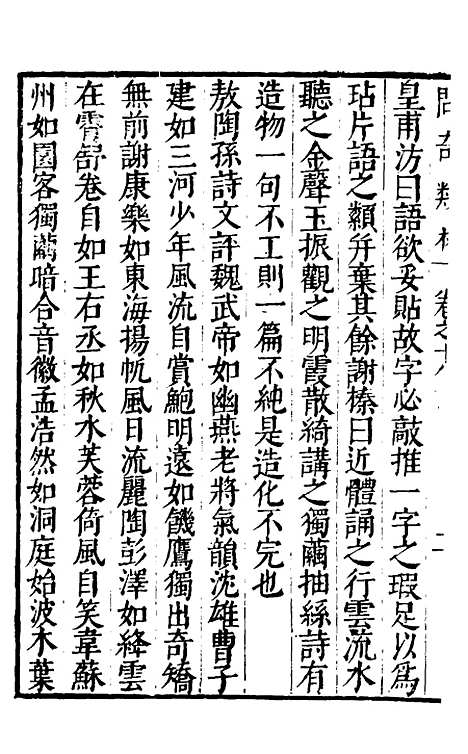 問奇類林 卷之十八 二
皇甫汸曰語欲妥貼故字必敲推一字之瑕足以為
玷片語之纇并棄其餘謝榛曰近體誦之行雲流水
聽之金聲玉振觀之明霞散綺講之獨繭抽絲詩有
造物一句不工則一篇不純是造化不完也
敖陶孫詩文評魏武帝如幽燕老將氣韻沈雄曹子
建如三河少年風流自賞鮑明遠如饑鷹獨出奇矯
無前謝康樂如東海揚帆風日流麗陶彭澤如絳雲
在霄舒卷自如王右丞如秋水芙蓉倚風自笑韋蘇
州如園客獨繭暗合音徽孟浩然如洞庭始波木葉